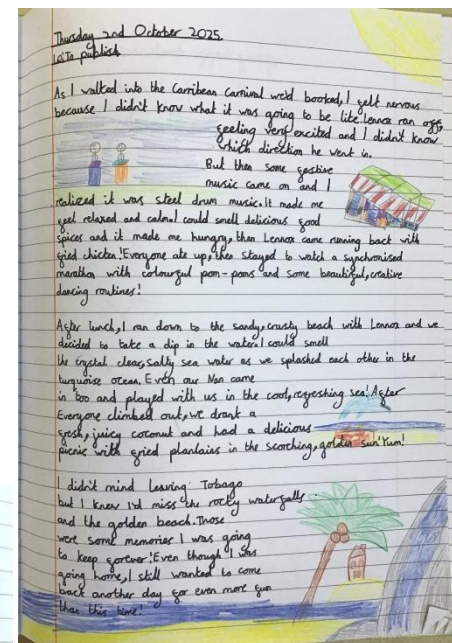 Thursday 2nd October 2025.
LO: To publish
As I walked into the Carribean Carnival we'd booked, I felt nervous
because I didn't know what it was going to be like. Lennox ran off,
feeling very excited and I didn't know
which direction he went in.
But then some festive
music came on and I
realized it was steel drum music. It made me
feel relaxed and calm. I could smell delicious food
spices and it made me hungry, then Lennox came running back with
fried chicken! Everyone ate up, then stayed to watch a synchronised
marathon with colourful pom-poms and some beautiful, creative
dancing routines!
After lunch, I ran down to the sandy, crusty beach with Lennox and we
decided to take a dip in the water. I could smell
the crystal clear, salty sea water as we splashed each other in the
turquoise ocean. Even our Nan came
in too and played with us in the cool, refreshing sea! After
Everyone climbed out, we drank a
fresh, juicy coconut and had a delicious
picnic with fried plantains in the scorching, golden sun! Yum!
I didn't mind leaving Tobago
but I knew I'd miss the rocky waterfalls
and the golden beach. Those
were some memories I was going
to keep forever! Even though I was
going home, I still wanted to come
back another day for even more fun
than this time!